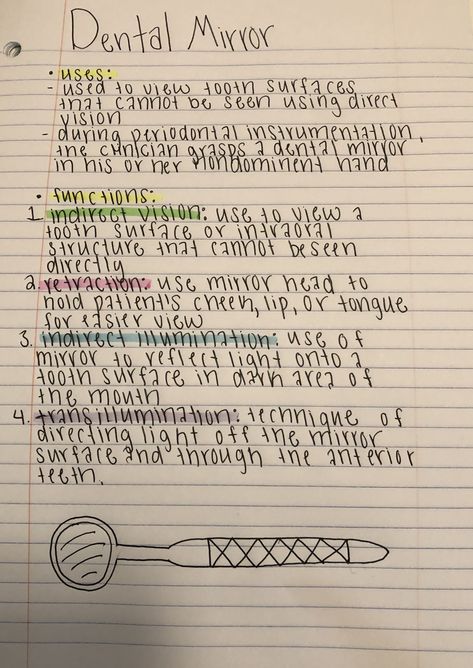 Dental Mirror
• uses:
- used to view tooth surfaces
that cannot be seen using direct
vision
- during periodontal instrumentation,
the clinician grasps a dental mirror
in his or her nondominent hand
• functions:
1. indirect vision: use to view a
tooth surface or intraoral
structure that cannot be seen
directly
2. retraction: use mirror head to
hold patient's cheek, lip, or tongue
for easier view
3. indirect illumination: use of
mirror to reflect light onto a
tooth surface in dark area of
the mouth
4. transillumination: technique of
directing light off the mirror
surface and through the anterior
teeth.